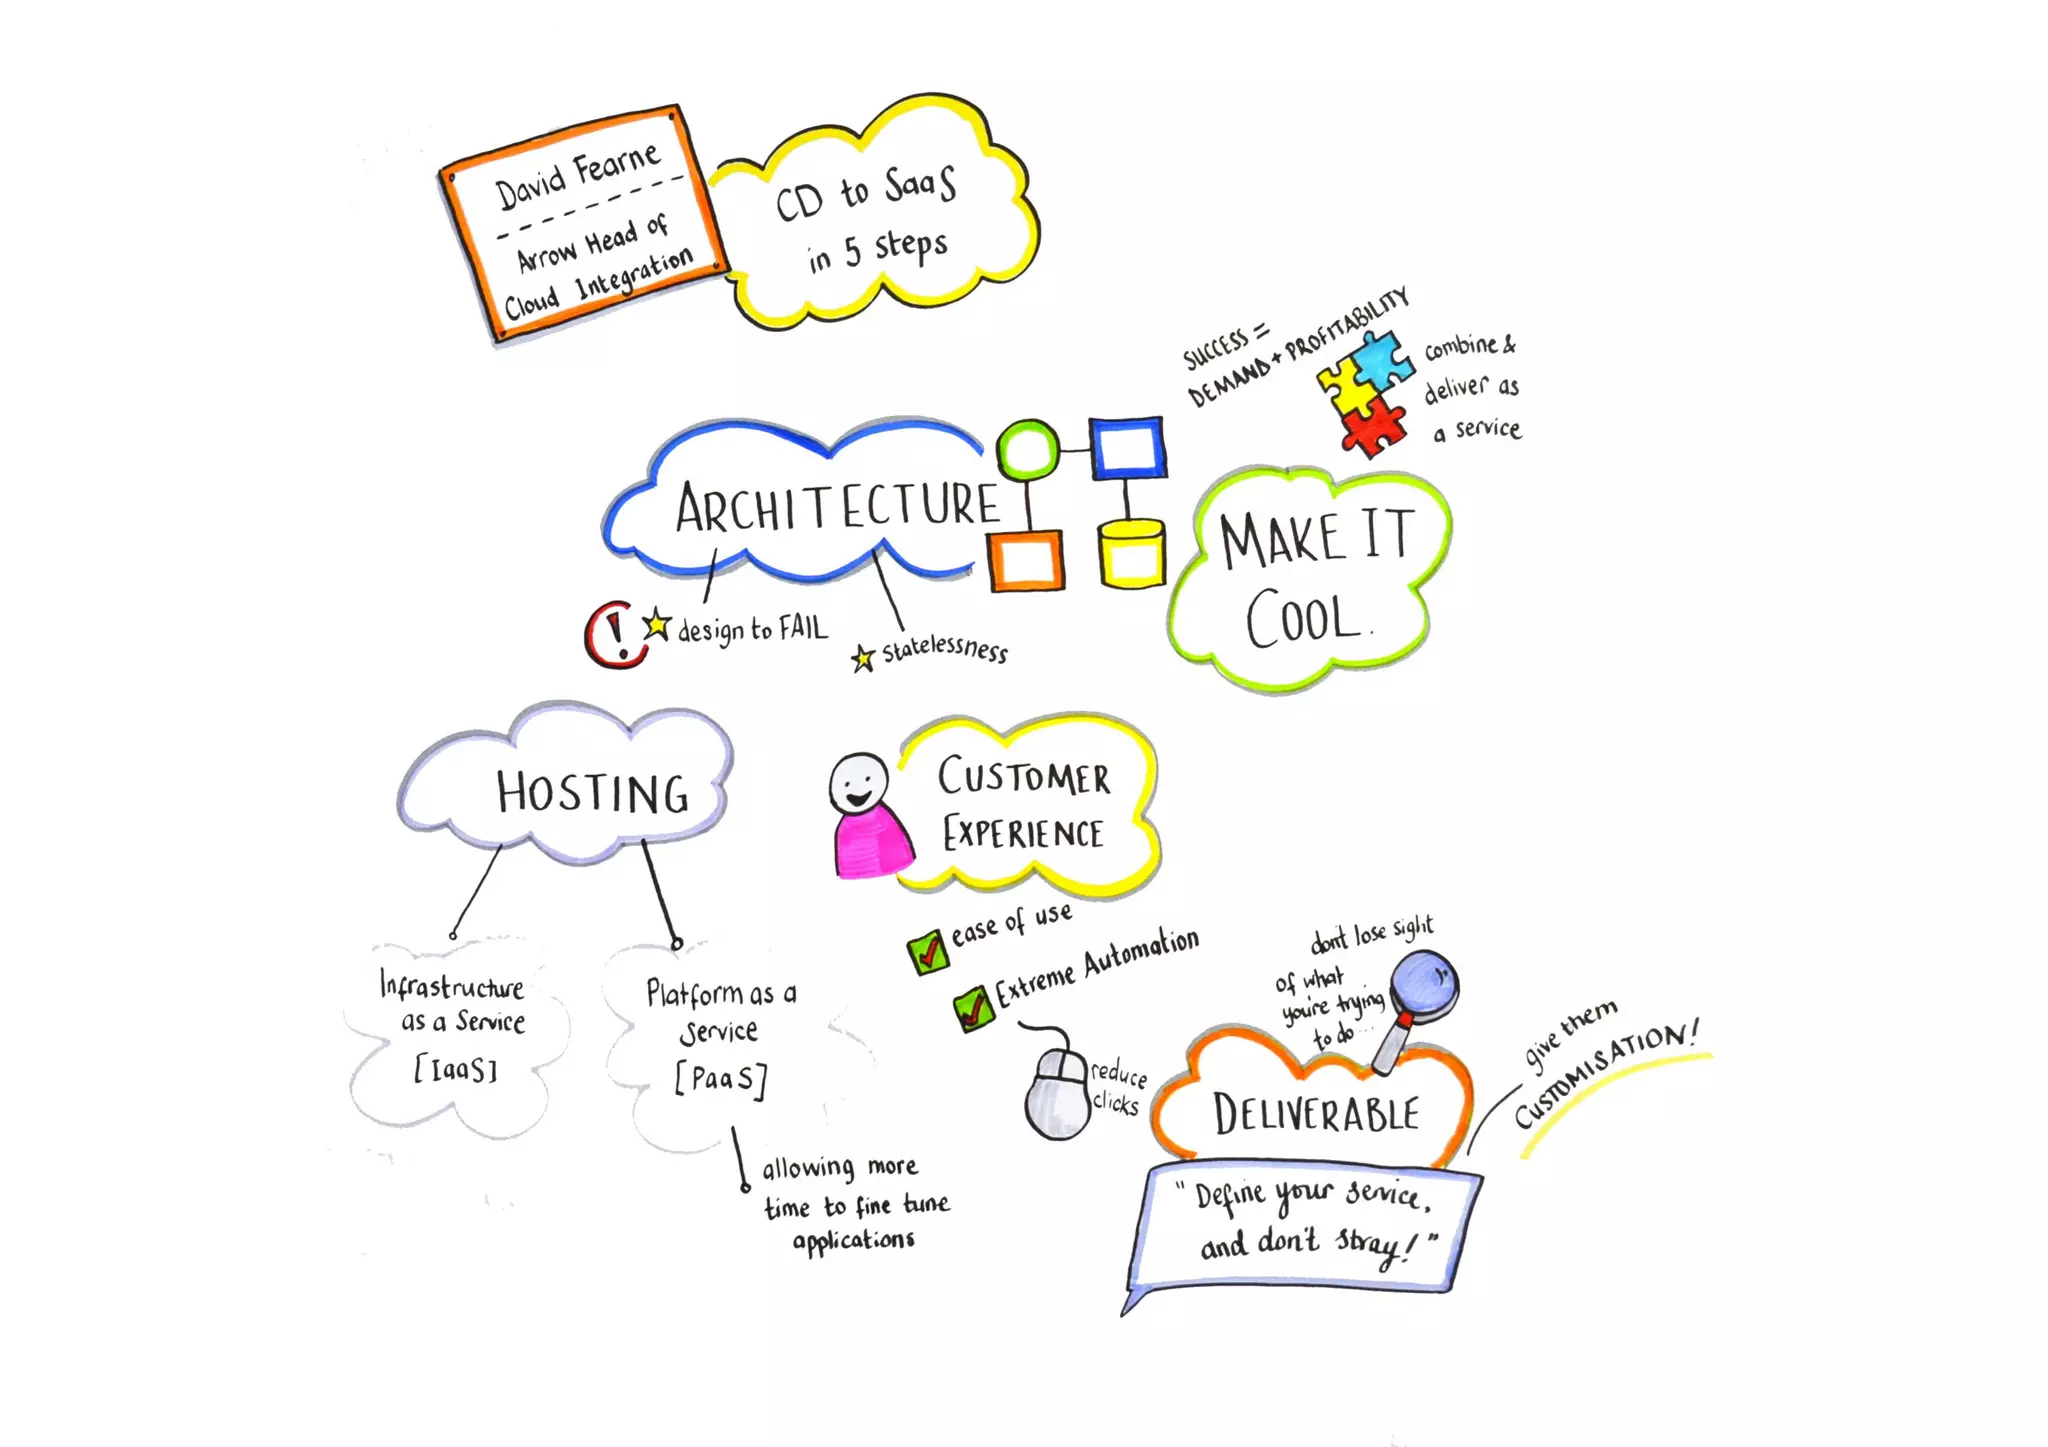 David Fearne
Arrow Head of
Cloud Integration
CD to SaaS
in 5 steps
SUCCESS =
DEMAND + PROFITABILITY
combine &
deliver as
a service
ARCHITECTURE
design to FAIL
statelessness
MAKE IT
COOL.
HOSTING
Infrastructure
as a Service
[IaaS]
Platform as a
Service
[PaaS]
allowing more
time to fine tune
applications
CUSTOMER
EXPERIENCE
ease of use
Extreme Automation
reduce
clicks
don't lose sight
of what
you're trying
to do...
DELIVERABLE
"Define your service,
and don't stray!"
give them
CUSTOMISATION!